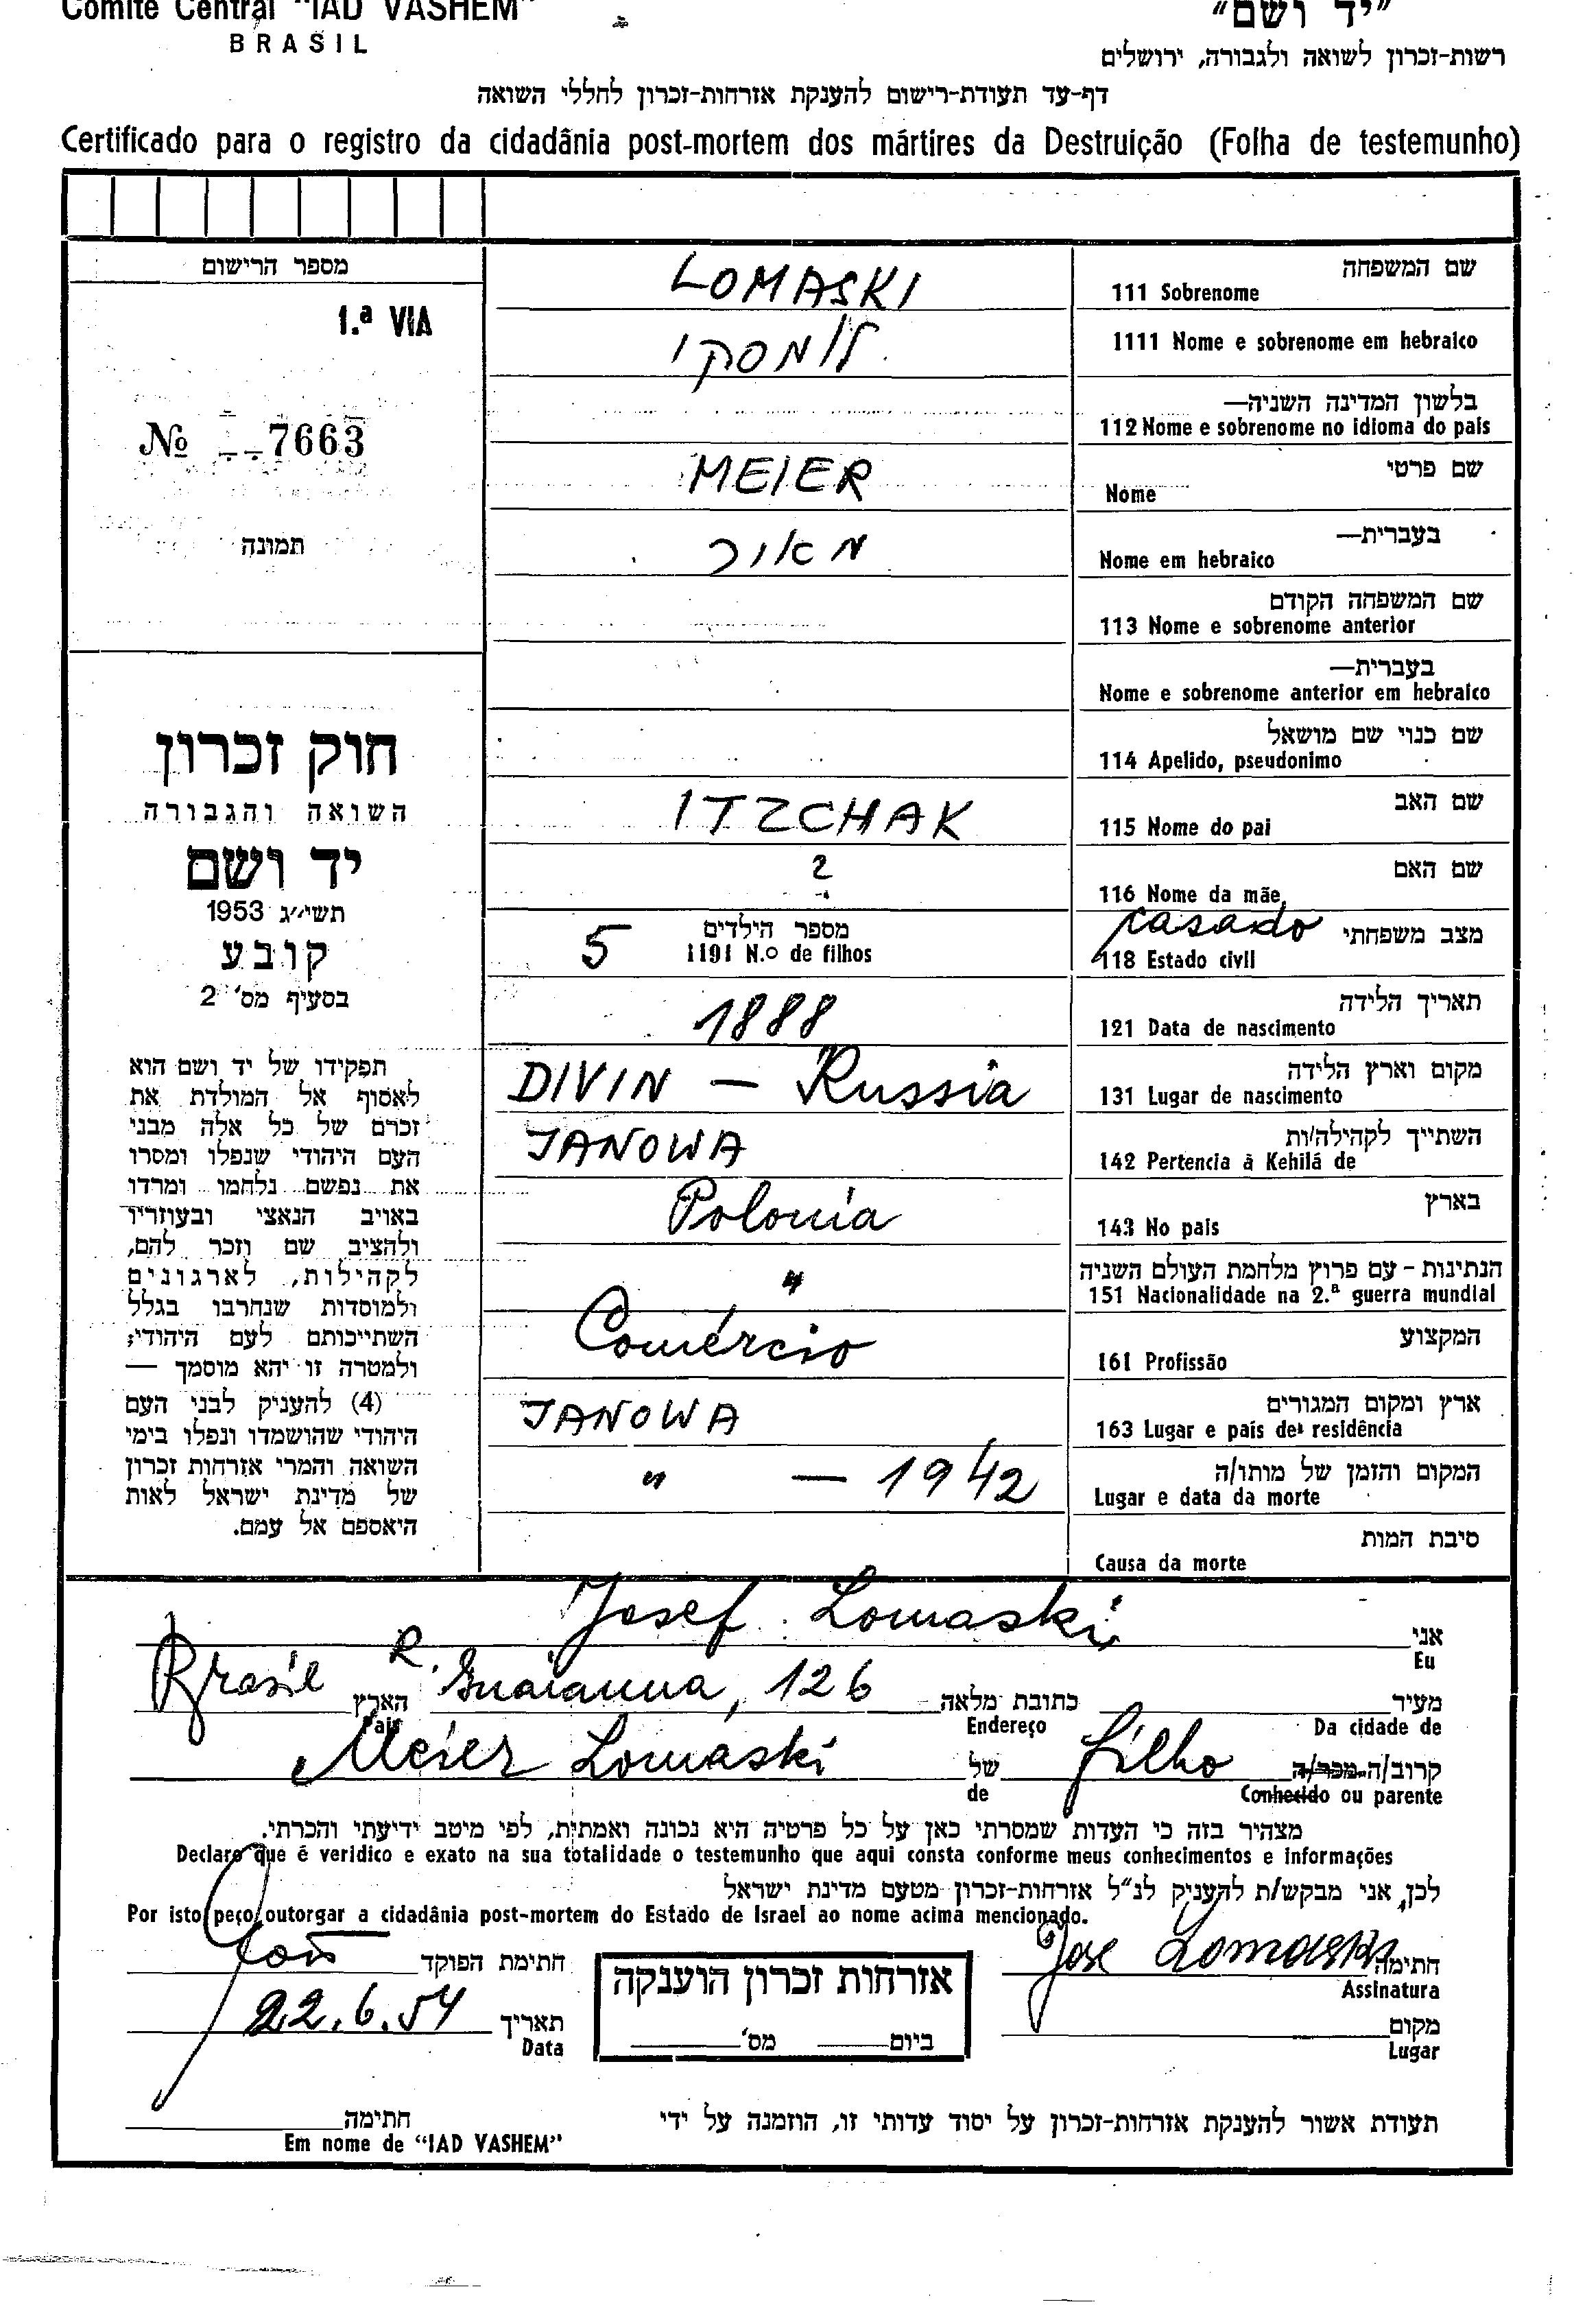 Comité Central "IAD VASHEM"
BRASIL
"יד ושם"
רשות-זכרון לשואה ולגבורה, ירושלים
דף-עד תעודת-רישום להענקת אזרחות-זכרון לחללי השואה
Certificado para o registro da cidadânia post-mortem dos mártires da Destruição (Folha de testemunho)
מספר הרישום
1.ª VIA
Nº 7663
תמונה
חוק זכרון
השואה והגבורה
יד ושם
תשי״ג 1953
קובע
בסעיף מס' 2
תפקידו של יד ושם הוא
לאסוף אל המולדת את
זכרם של כל אלה מבני
העם היהודי שנפלו ומסרו
את נפשם נלחמו ומרדו
באויב הנאצי ובעוזריו
ולהציב שם וזכר להם,
לקהילות, לארגונים
ולמוסדות שנחרבו בגלל
השתייכותם לעם היהודי;
ולמטרה זו יהא מוסמך —
(4) להעניק לבני העם
היהודי שהושמדו ונפלו בימי
השואה והמרי אזרחות זכרון
של מדינת ישראל לאות
היאספם אל עמם.
שם המשפחה
111 Sobrenome LOMASKI
1111 Nome e sobrenome em hebraico לומסקי
בלשון המדינה השניה—
112 Nome e sobrenome no idioma do país
שם פרטי
Nome MEIER
בעברית—
Nome em hebraico מאיר
שם המשפחה הקודם
113 Nome e sobrenome anterior
בעברית—
Nome e sobrenome anterior em hebraico
שם כנוי שם מושאל
114 Apelido, pseudonimo
שם האב
115 Nome do pai ITZCHAK
שם האם
116 Nome da mãe ?
מצב משפחתי
118 Estado civil casado
מספר הילדים
1191 N.o de filhos 5
תאריך הלידה
121 Data de nascimento 1888
מקום וארץ הלידה
131 Lugar de nascimento DIVIN — Russia
השתייך לקהילה/ות
142 Pertencia à Kehilá de JANOWA
בארץ
143 No país Polonia
הנתינות - עם פרוץ מלחמת העולם השניה
151 Nacionalidade na 2.ª guerra mundial "
המקצוע
161 Profissão Comércio
ארץ ומקום המגורים
163 Lugar e país de residência JANOWA
המקום והזמן של מותו/ה
Lugar e data da morte " — 1942
סיבת המות
Causa da morte
אני
Eu Josef Lomaski
מעיר
Da cidade de
כתובת מלאה
Endereço R. Guaianna, 126
הארץ
País Brasil
קרוב/ה מכר/ה
Conhecido ou parente filho
של
de Meier Lomaski
מצהיר בזה כי העדות שמסרתי כאן על כל פרטיה היא נכונה ואמתית, לפי מיטב ידיעתי והכרתי.
Declaro que é veridico e exato na sua totalidade o testemunho que aqui consta conforme meus conhecimentos e informações
לכן, אני מבקש/ת להעניק לנ"ל אזרחות-זכרון מטעם מדינת ישראל
Por isto peço outorgar a cidadânia post-mortem do Estado de Israel ao nome acima mencionado.
חתימה
Assinatura Jose Lomaski
מקום
Lugar
אזרחות זכרון הוענקה
ביום מס'
חתימת הפוקד
תאריך
Data 22.6.54
תעודת אשור להענקת אזרחות-זכרון על יסוד עדותי זו, הוזמנה על ידי
חתימה
Em nome de "IAD VASHEM"